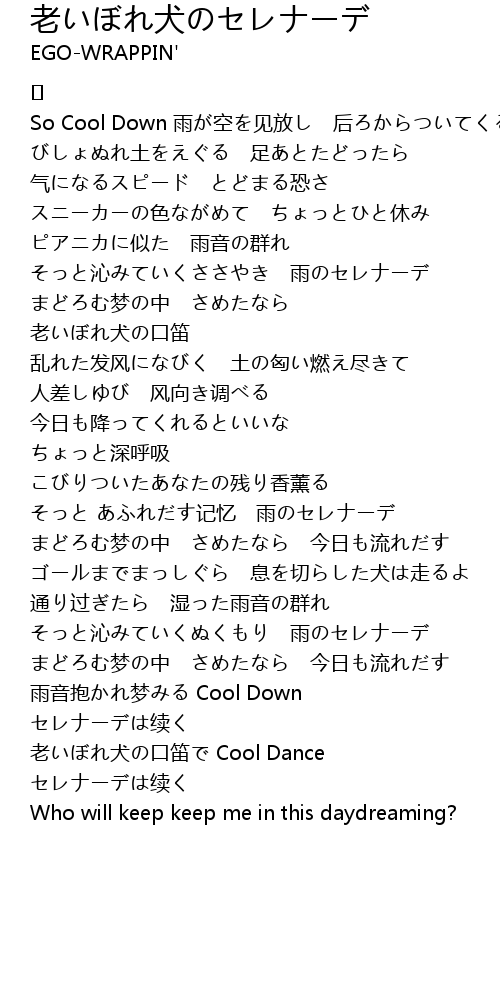 老いぼれ犬のセレナーデ
EGO-WRAPPIN'
So Cool Down 雨が空を见放し　后ろからついてくる
びしょぬれ土をえぐる　足あとたどったら
气になるスピード　とどまる恐さ
スニーカーの色ながめて　ちょっとひと休み
ピアニカに似た　雨音の群れ
そっと沁みていくささやき　雨のセレナーデ
まどろむ梦の中　さめたなら
老いぼれ犬の口笛
乱れた发风になびく　土の匈い燃え尽きて
人差しゆび　风向き调べる
今日も降ってくれるといいな
ちょっと深呼吸
こびりついたあなたの残り香薰る
そっと あふれだす记忆　雨のセレナーデ
まどろむ梦の中　さめたなら　今日も流れだす
ゴールまでまっしぐら　息を切らした犬は走るよ
通り过ぎたら　湿った雨音の群れ
そっと沁みていくぬくもり　雨のセレナーデ
まどろむ梦の中　さめたなら　今日も流れだす
雨音抱かれ梦みる Cool Down
セレナーデは续く
老いぼれ犬の口笛で Cool Dance
セレナーデは续く
Who will keep keep me in this daydreaming?